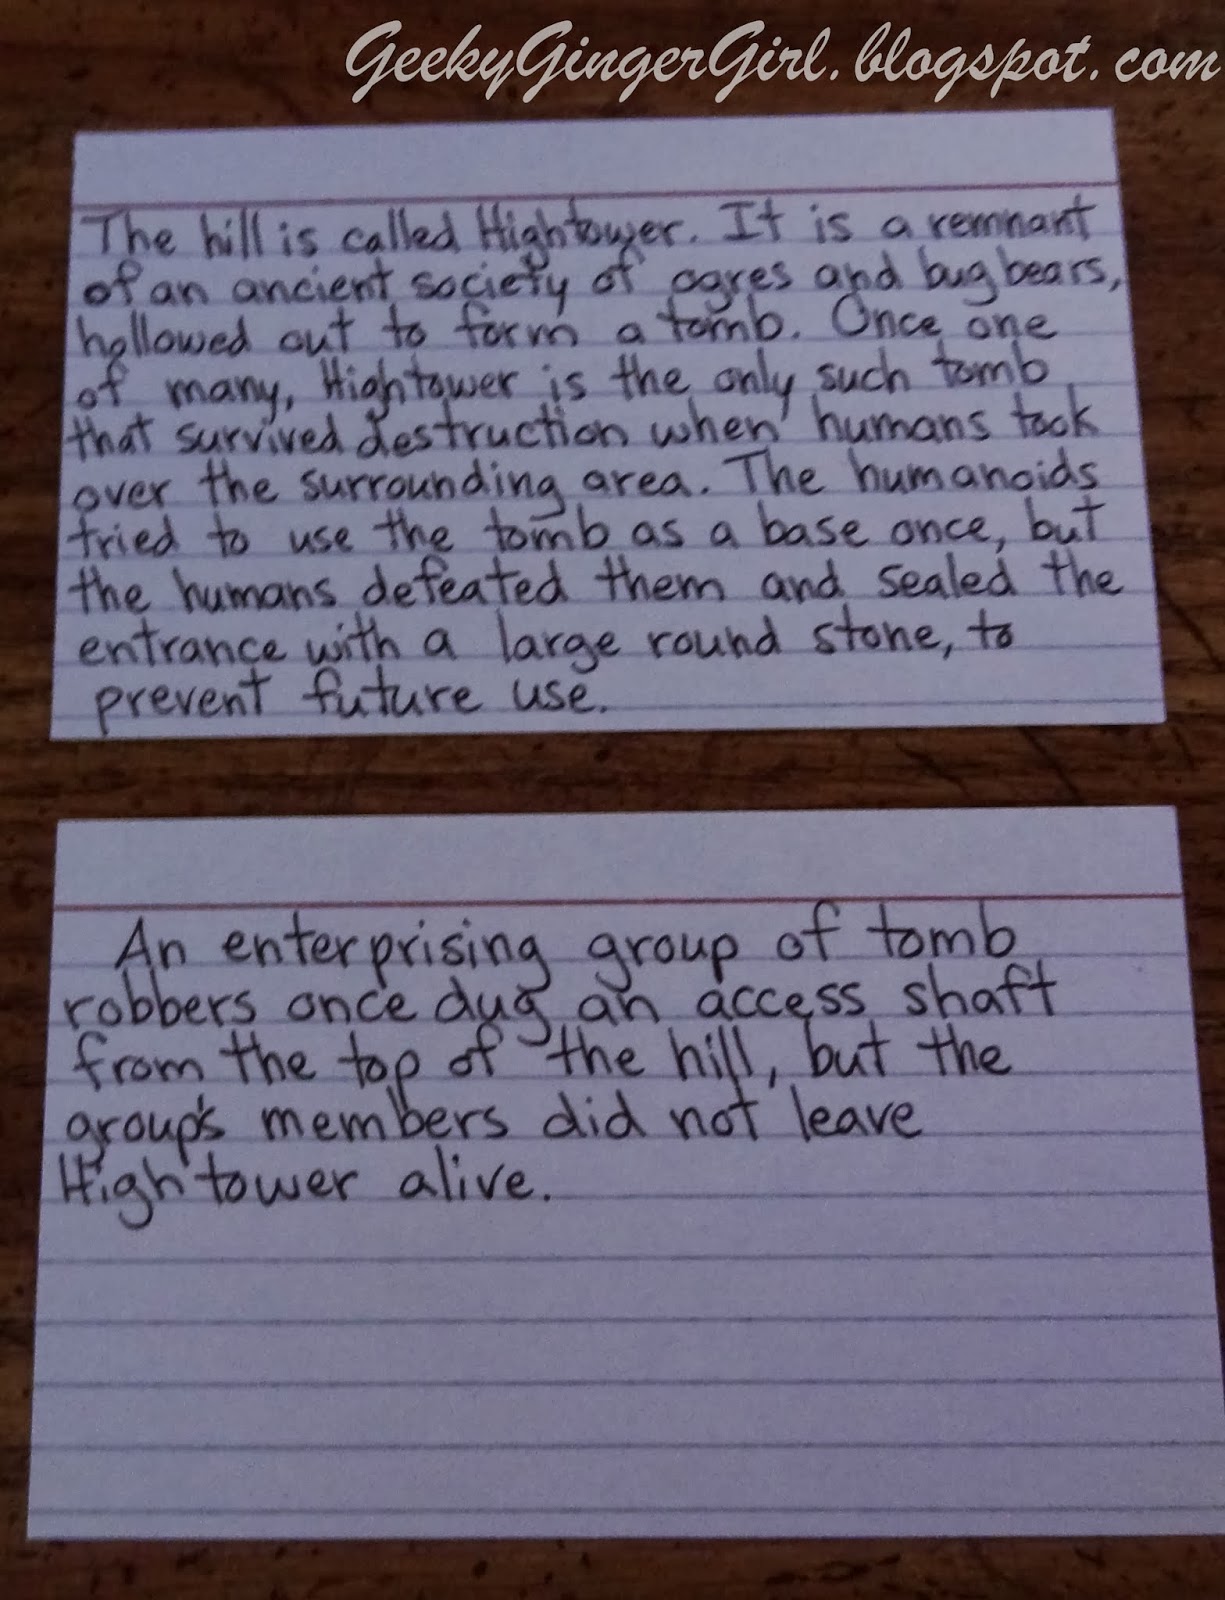 GeekyGingerGirl.blogspot.com
The hill is called Hightower. It is a remnant
of an ancient society of ogres and bugbears,
hollowed out to form a tomb. Once one
of many, Hightower is the only such tomb
that survived destruction when humans took
over the surrounding area. The humanoids
tried to use the tomb as a base once, but
the humans defeated them and sealed the
entrance with a large round stone, to
prevent future use.
An enterprising group of tomb
robbers once dug an access shaft
from the top of the hill, but the
group's members did not leave
Hightower alive.